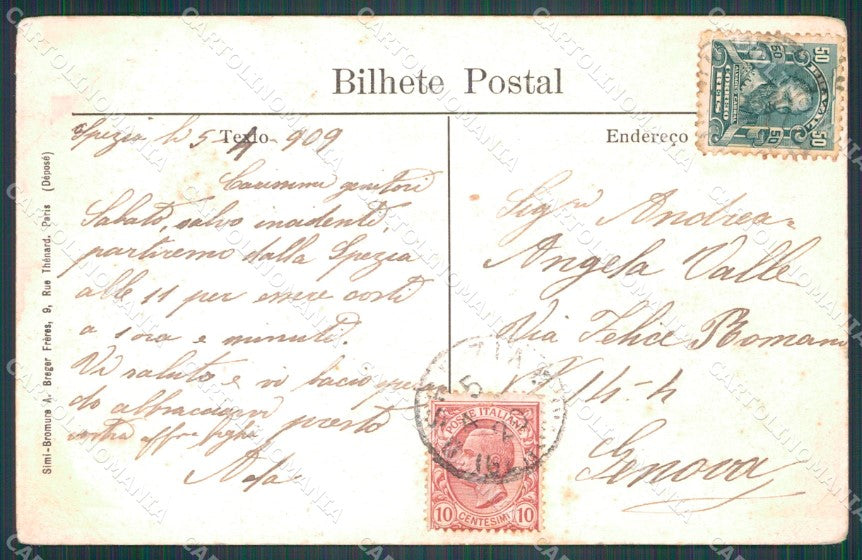 Bilhete Postal
Texto
Endereço
Spezia li 5-4-909
Carissimi genitori
Sabato, salvo incidenti,
partiremo dalla Spezia
alle 11 per essere costì
a 1 ora e minuti.
Vi saluto e vi bacio speran
do abbracciarvi presto
vostra aff.ma figlia
Ada
Sig.ri Andrea =
Angela Valle
Via Felice Romani
N 14-4
Genova
Simi-Bromure A. Breger Frères, 9, Rue Thénard. Paris (Déposé)
50 50
BRAZIL
CORREIO
50 50
POSTE ITALIANE
10 CENTESIMI 10
CARTOLINOMANIA